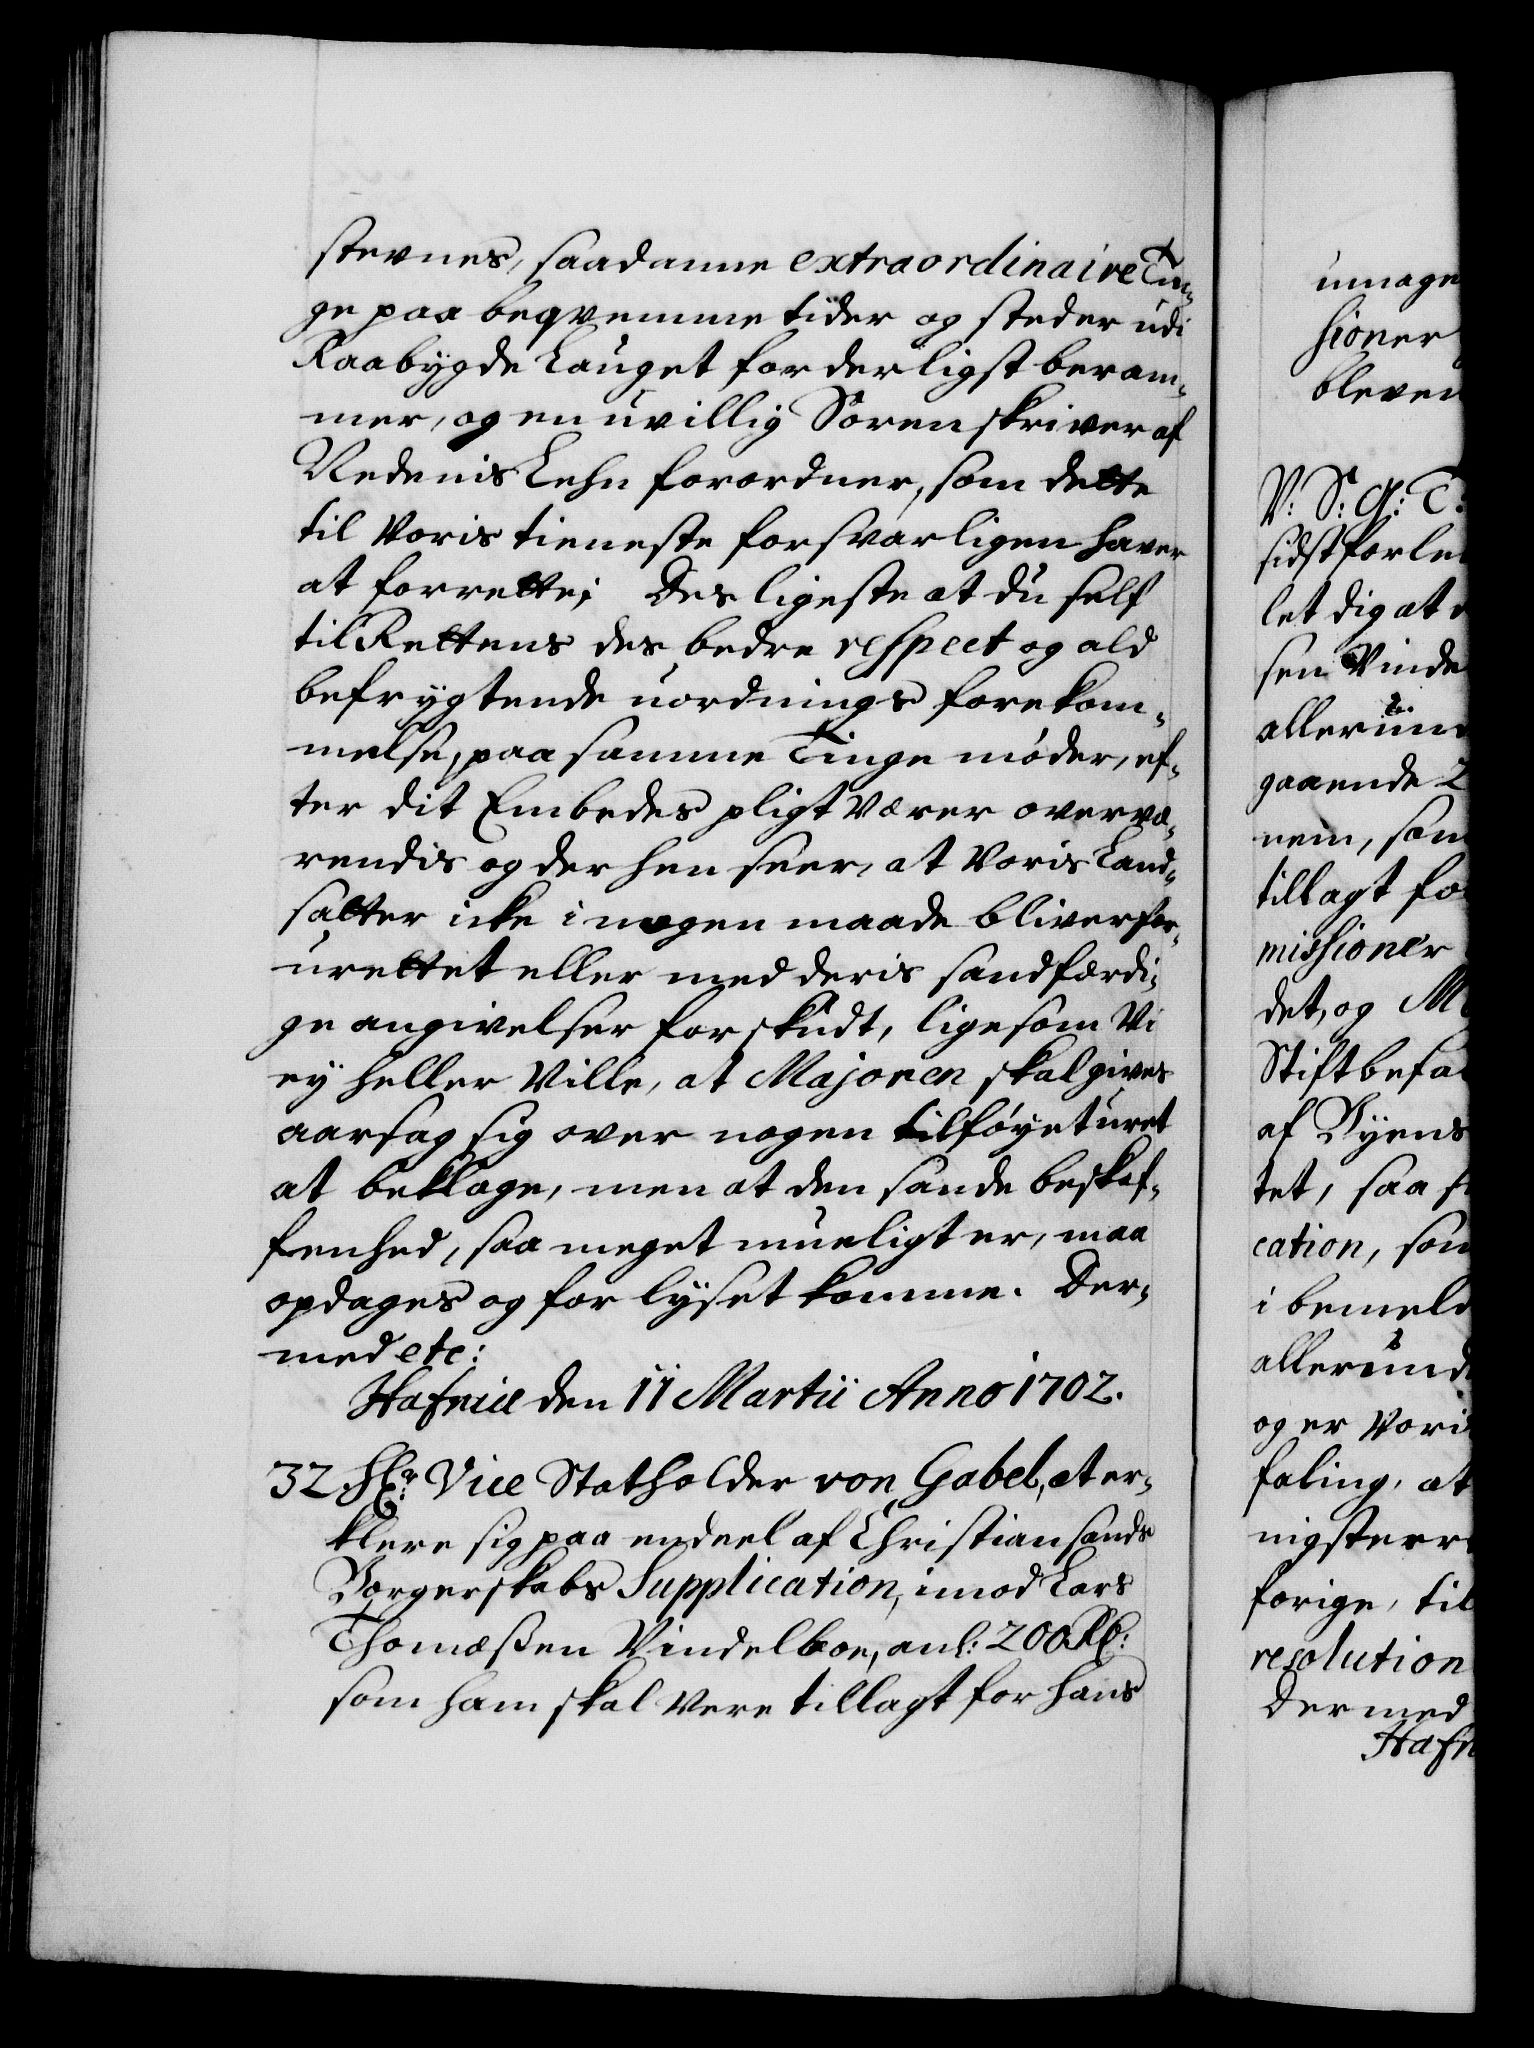 stevnes, saadanne extraordinaire Tin-
ge paa beqvemme tider og steder udi
Raabygde Lauget forderligst beram-
mer, og en uvillig Sorenskriver af
Nedenis Lehn forordner, som dette
til Voris tieneste forsvarligen haver
at forrette; Desligeste at du self
til Rettens des bedre respect og ald
befrygtende uordnings forekom-
melse, paa samme Tinge møder, ef-
ter dit Embedes pligt værer overvæ-
rendis og der hen seer, at Voris Land-
satter icke i nogen maade bliver for-
urettet eller med deris sandfærdi-
ge angivelser forskudt, ligesom Vi
ey heller Ville, at Majoren skal gives
aarsag sig over nogen tilføyet uret
at beklage, men at den sande beskaf-
fenhed, saa meget mueligt er, maa
opdages og for lyset komme. Der-
med etc:
Hafniæ den 11 Martii Anno 1702.
32. Hr: Vice Statholder von Gabel, at er-
klere sig paa en deel af Christiansands
Borgerskabs Supplication, imod Lars
Thomæßen Vindelboe, anl: 200 Rd:
som ham skal være tillagt for hans
umage
sioner
bleven
V: S: G: T:
sidst forle
let dig at
sen Vinde
allerund
gaaende 2
nem, som
tillagt for
missioner
det, og M
Stiftbefa
af Byens
tet, saa
cation, som
i bemeld
allerund
og er Vori
faling, at
nigst er
forige, til
resolution
Dermed
Hafn